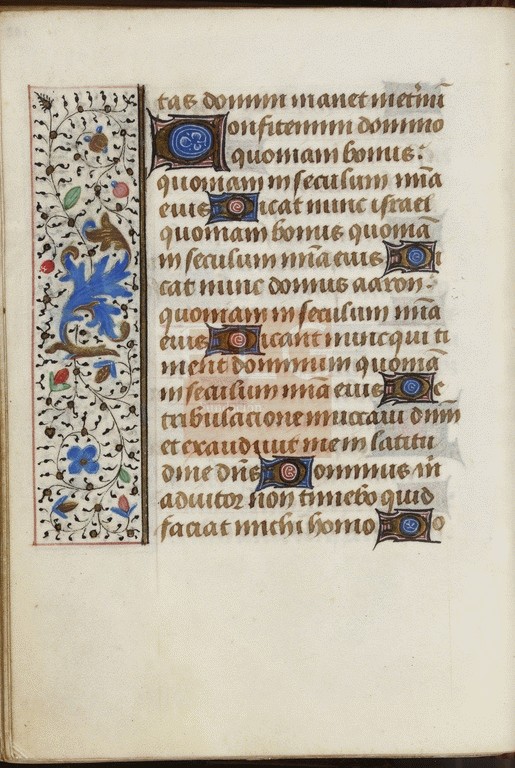 tas domini manet ineternū
Confitemini domino
quoniam bonus:
quoniam in seculum mīa
eius Dicat nunc israel
quoniam bonus quoniā
in seculum mīa eius Di
cat nunc domus aaron:
quoniam in seculum mīa
eius Dicant nunc qui ti
ment dominum quoniā
in seculum mīa eius De
tribulacione inuocaui dnm̄
et exaudiuit me in latitu
dine dn̄s Dominus m̄
adiutor non timebo quid
faciat michi homo Do